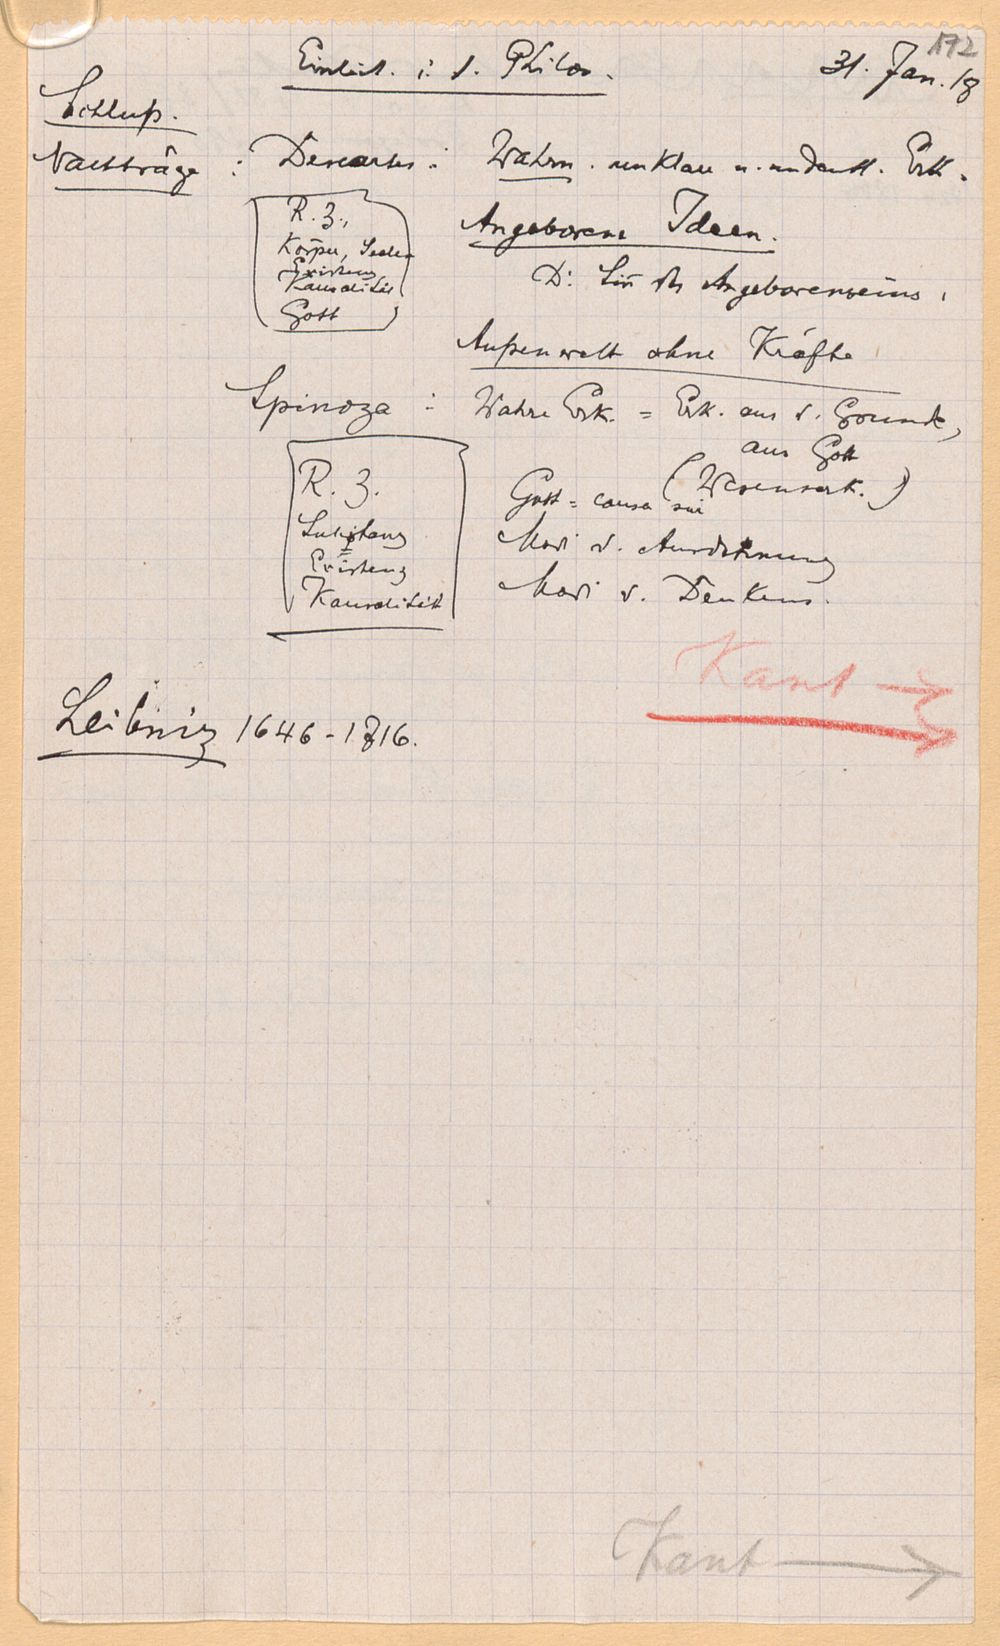 172
Einleit. i. d. Philos. 31. Jan. 18
Schluß.
Nachträge : Descartes : Wahrn. unklare u. undeutl. Erk.
R. Z.,
Körper, Seelen
Existenz
Kausalität
Gott
Angeborene Ideen.
D: Sinn des Angeborenseins.
Außenwelt ohne Kräfte
Spinoza : Wahre Erk. = Erk. aus d. Grunde,
aus Gott
(Wesenserk.)
R. Z.
Substanz
Existenz
Kausalität
Gott = causa sui
Modi d. Ausdehnung
Modi d. Denkens.
Kant →
Leibniz 1646-1716.
Kant →